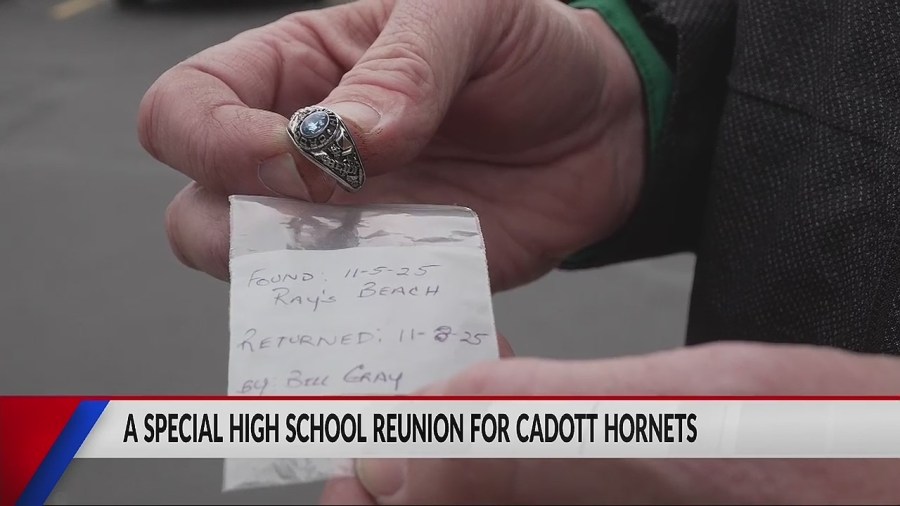 FOUND: 11-5-25
RAY'S BEACH
RETURNED: 11-8-25
BY: BILL GRAY
A SPECIAL HIGH SCHOOL REUNION FOR CADOTT HORNETS